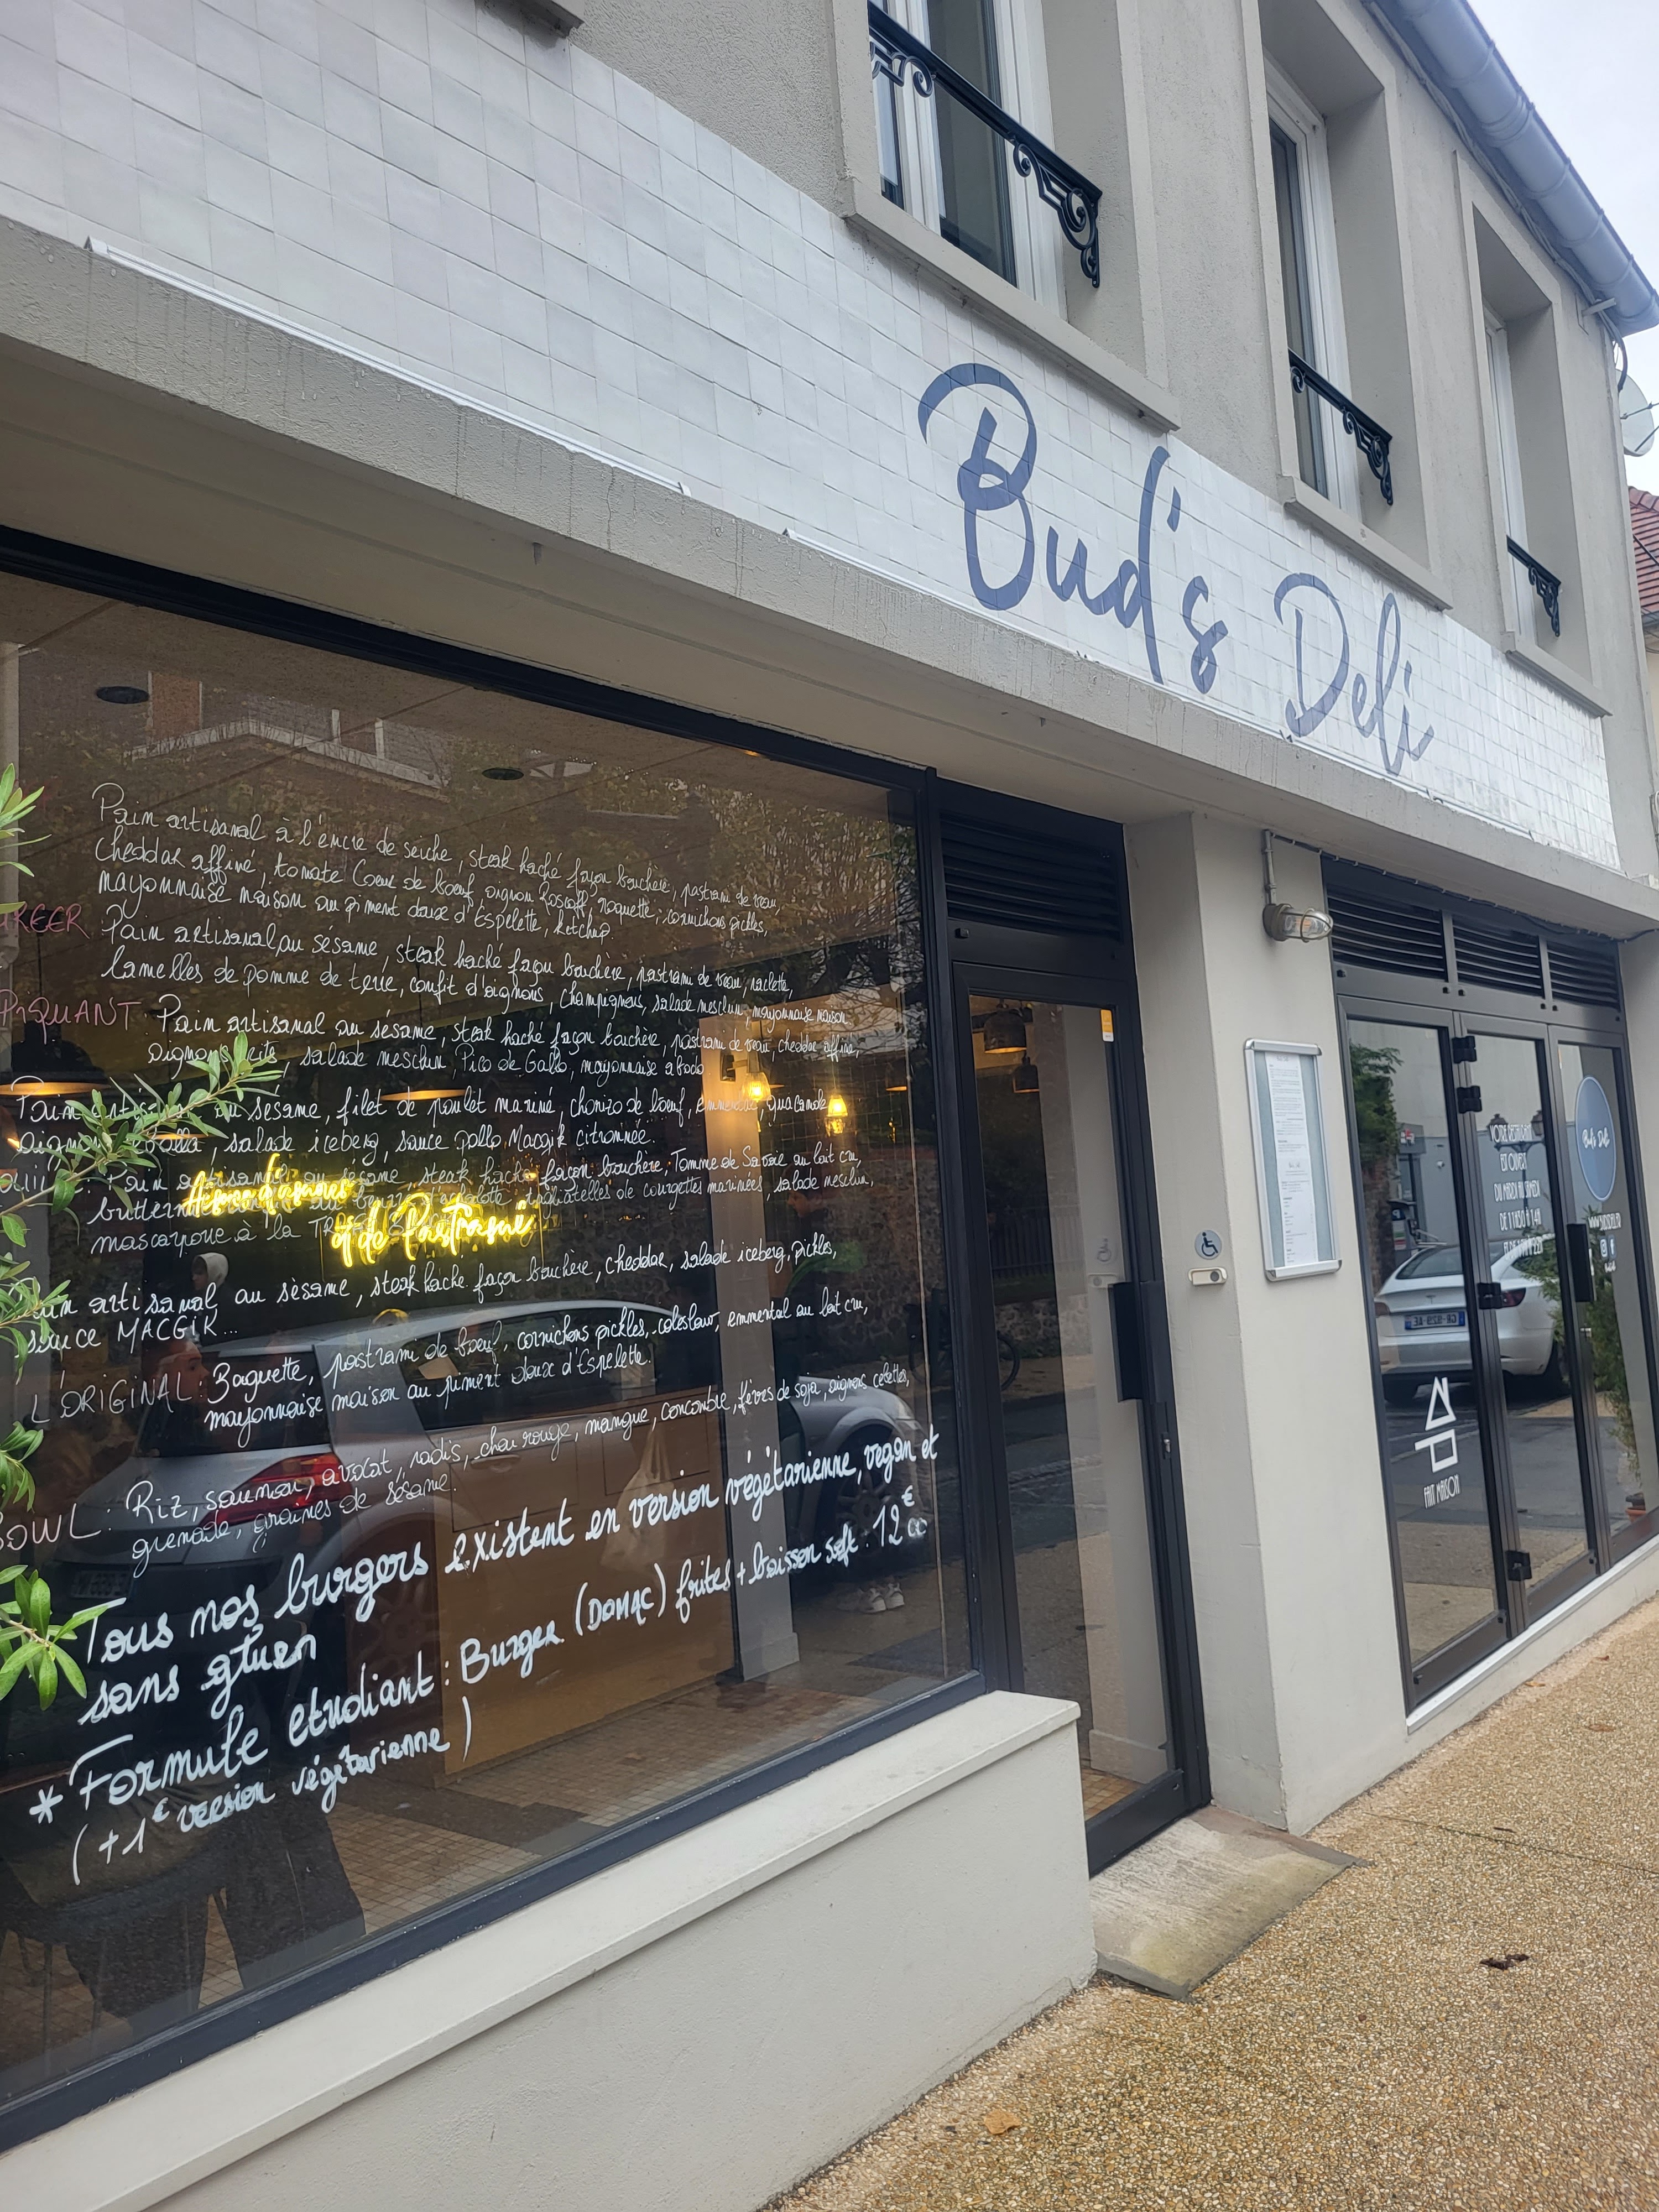 Bud's Deli
Pain artisanal à l'encre de seiche, steak haché façon bouchère, pastrami de veau,
cheddar affiné, tomate Coeur de boeuf oignon Roscoff, roquette, cornichons pickles,
mayonnaise maison au piment doux d'Espelette, ketchup.
Pain artisanal au sésame, steak haché façon bouchère, pastrami de veau, raclette,
lamelles de pomme de terre, confit d'oignons, champignons, salade mesclun, mayonnaise maison
PIQUANT: Pain artisanal au sésame, steak haché façon bouchère, pastrami de veau, cheddar affiné,
oignons frits, salade mesclun, Pico de Gallo, mayonnaise
Pain artisanal au sésame, filet de poulet mariné, chorizo de boeuf, emmental, guacamole
oignons salade iceberg, sauce pollo, Macgik citronnée.
Pain artisanal au sésame, steak haché façon bouchère, Tomme de Savoie au lait cru,
tagliatelles de courgettes marinées, salade mesclun,
mascarpone à la
Pain artisanal au sèsame, steak hâché façon bouchère, cheddar, salade iceberg, pickles,
sauce MACGIK...
L'ORIGINAL: Baguette, pastrami de boeuf, cornichons pickles, coleslaw, emmental au lait cru,
mayonnaise maison au piment doux d'Espelette.
BOWL: Riz, saumon, avocat, radis, chou rouge, mangue, concombre, fèves de soja, oignons cebettes,
grenade, graines de sésame.
Tous nos burgers existent en version végétarienne, vegan et
sans gluten
* Formule etudiant: Burger (DOMAC) frites + boisson soft: 12€00
(+1€ version végétarienne)
et de Pastrami
VOTRE RESTAURANT
EST OUVERT
DU MARDI AU SAMEDI
FAIT MAISON
Bud's Deli